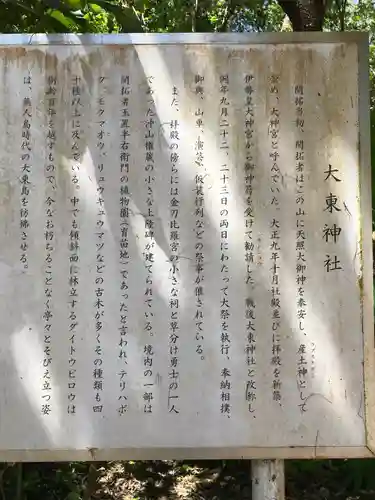 大東神社
開拓当初、開拓者はこの山に天照大御神を奉安し、産土神として
崇め、大神宮と呼んでいた。大正九年十月社殿並びに拝殿を新築
伊勢皇大神宮から御神符を受けて勧請した。戦後大東神社と改称し、
同年九月二十二、二十三日の両日にわたって大祭を執行、奉納相撲、
御輿、山車、演芸、仮装行列などの祭事が催されている。
また、拝殿の傍らには金刀比羅宮の小さな祠と草分け勇士の一人
であった沖山権蔵の小さな上陸碑が建てられている。境内の一部は
開拓者玉置半右衛門の植物園(育苗地)であったと言われ、テリハボ
ク、モクマオウ、リュウキュウマツなどの古木が多くその種類も四
十種以上に及んでいる。中でも傾斜面に林立するダイトウビロウは
樹齢百年を越すもので、今なお朽ちることなく亭々とそびえ立つ姿
は、無人島時代の大東島を彷彿させる。